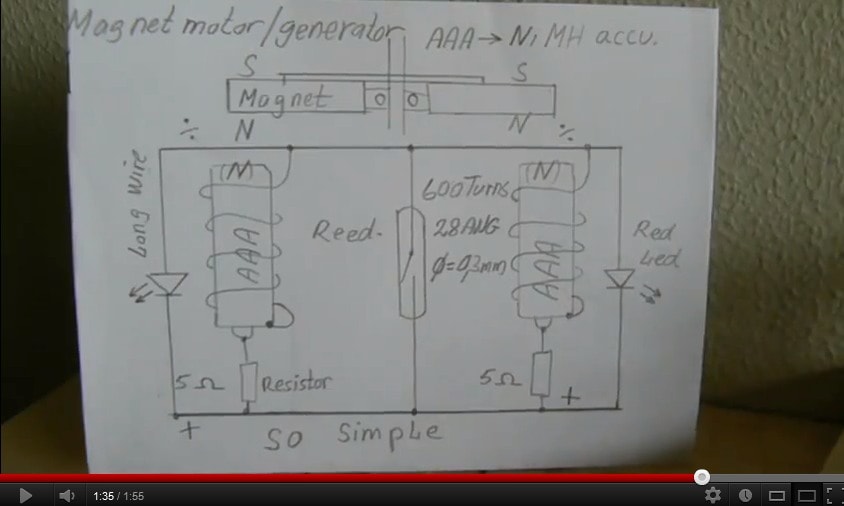 Magnet motor/generator AAA→Ni MH accu.
S S
Magnet
N N
÷ ÷
(N) (N)
Long Wire
AAA
Reed.
600 Turns
28 AWG
Ø=0,3mm
AAA
Red
Led
5Ω Resistor
5Ω
+ +
SO Simple
1:35 / 1:55